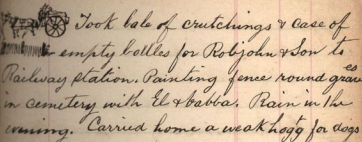 Took bale of crutchings & case of
empty bottles for Robjohn & Son to
Railway station. Painting fence round graves
in cemetery with El & babba. Rain in the
evening. Carried home a weak hogt for dogs